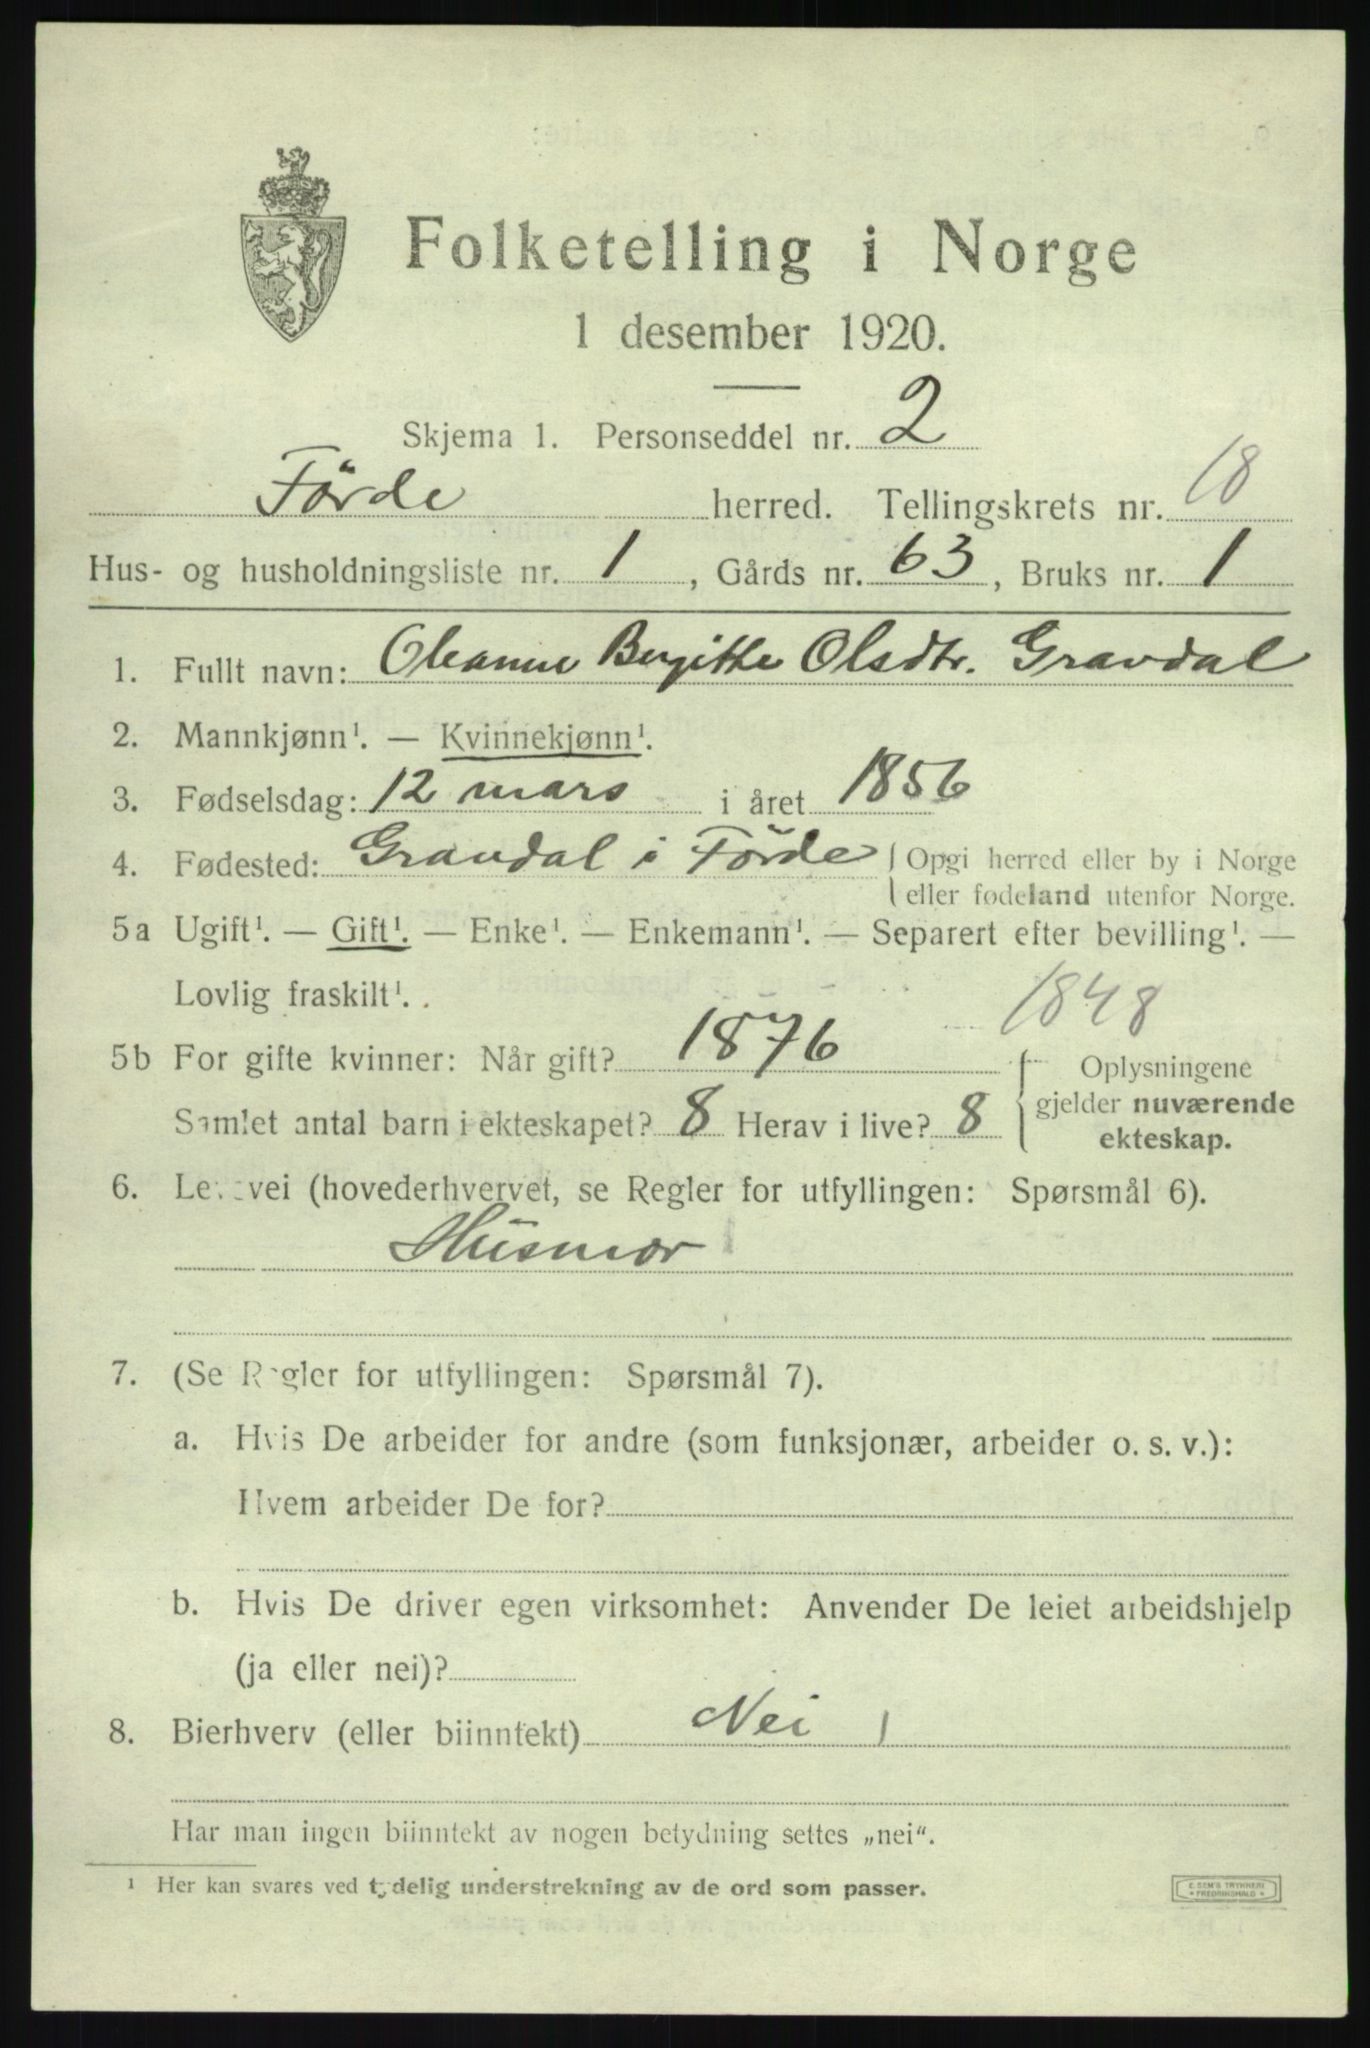 Folketelling i Norge
1 desember 1920.
Skjema 1. Personseddel nr. 2
Förde herred. Tellingskrets nr. 18
Hus- og husholdningsliste nr. 1, Gårds nr. 63, Bruks nr. 1
1. Fullt navn: Oleanne Birgitte Olsdtr. Gravdal
2. Mannkjønn¹. — Kvinnekjønn¹.
3. Fødselsdag: 12 mars i året 1856
4. Fødested: Gravdal i Förde { Opgi herred eller by i Norge
eller fødeland utenfor Norge.
5a Ugift¹. — Gift¹. — Enke¹. — Enkemann¹. — Separert efter bevilling¹. —
Lovlig fraskilt¹.
1848
5b For gifte kvinner: Når gift? 1876
Samlet antal barn i ekteskapet? 8 Herav i live? 8
Oplysningene
gjelder nuværende
ekteskap.
6. Levevei (hovederhvervet, se Regler for utfyllingen: Spørsmål 6).
Husmor
7. (Se Regler for utfyllingen: Spørsmål 7).
a. Hvis De arbeider for andre (som funksjonær, arbeider o. s. v.):
Hvem arbeider De for?
b. Hvis De driver egen virksomhet: Anvender De leiet arbeidshjelp
(ja eller nei)?
8. Bierhverv (eller biinntekt) Nei
Har man ingen biinntekt av nogen betydning settes „nei“.
¹ Her kan svares ved tydelig understrekning av de ord som passer.
E. SEM'S TRYKKERI
• FREDRIKSHALD •